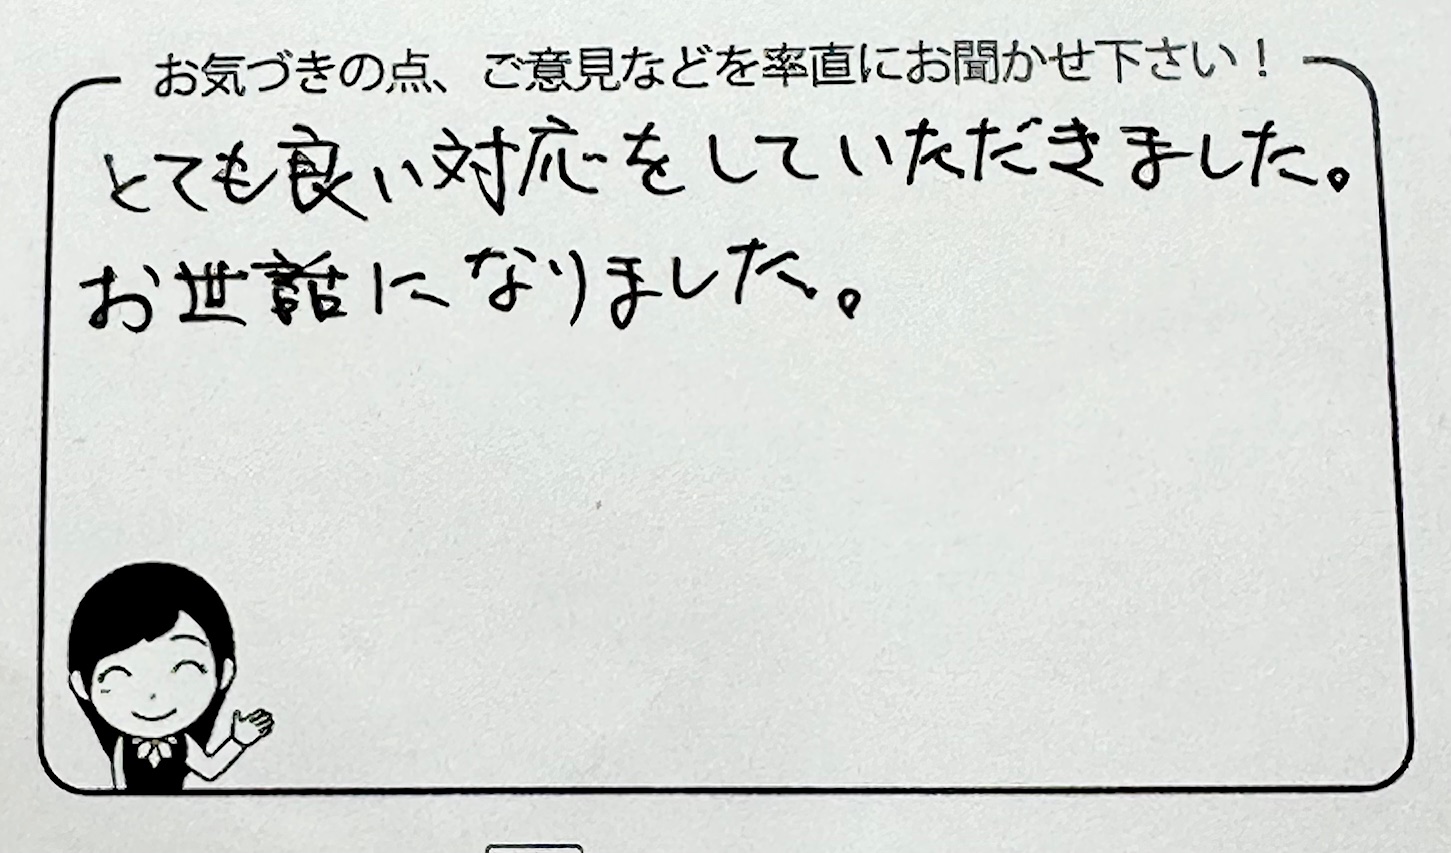 お気づきの点、ご意見などを率直にお聞かせ下さい！
とても良い対応をしていただきました。
お世話になりました。